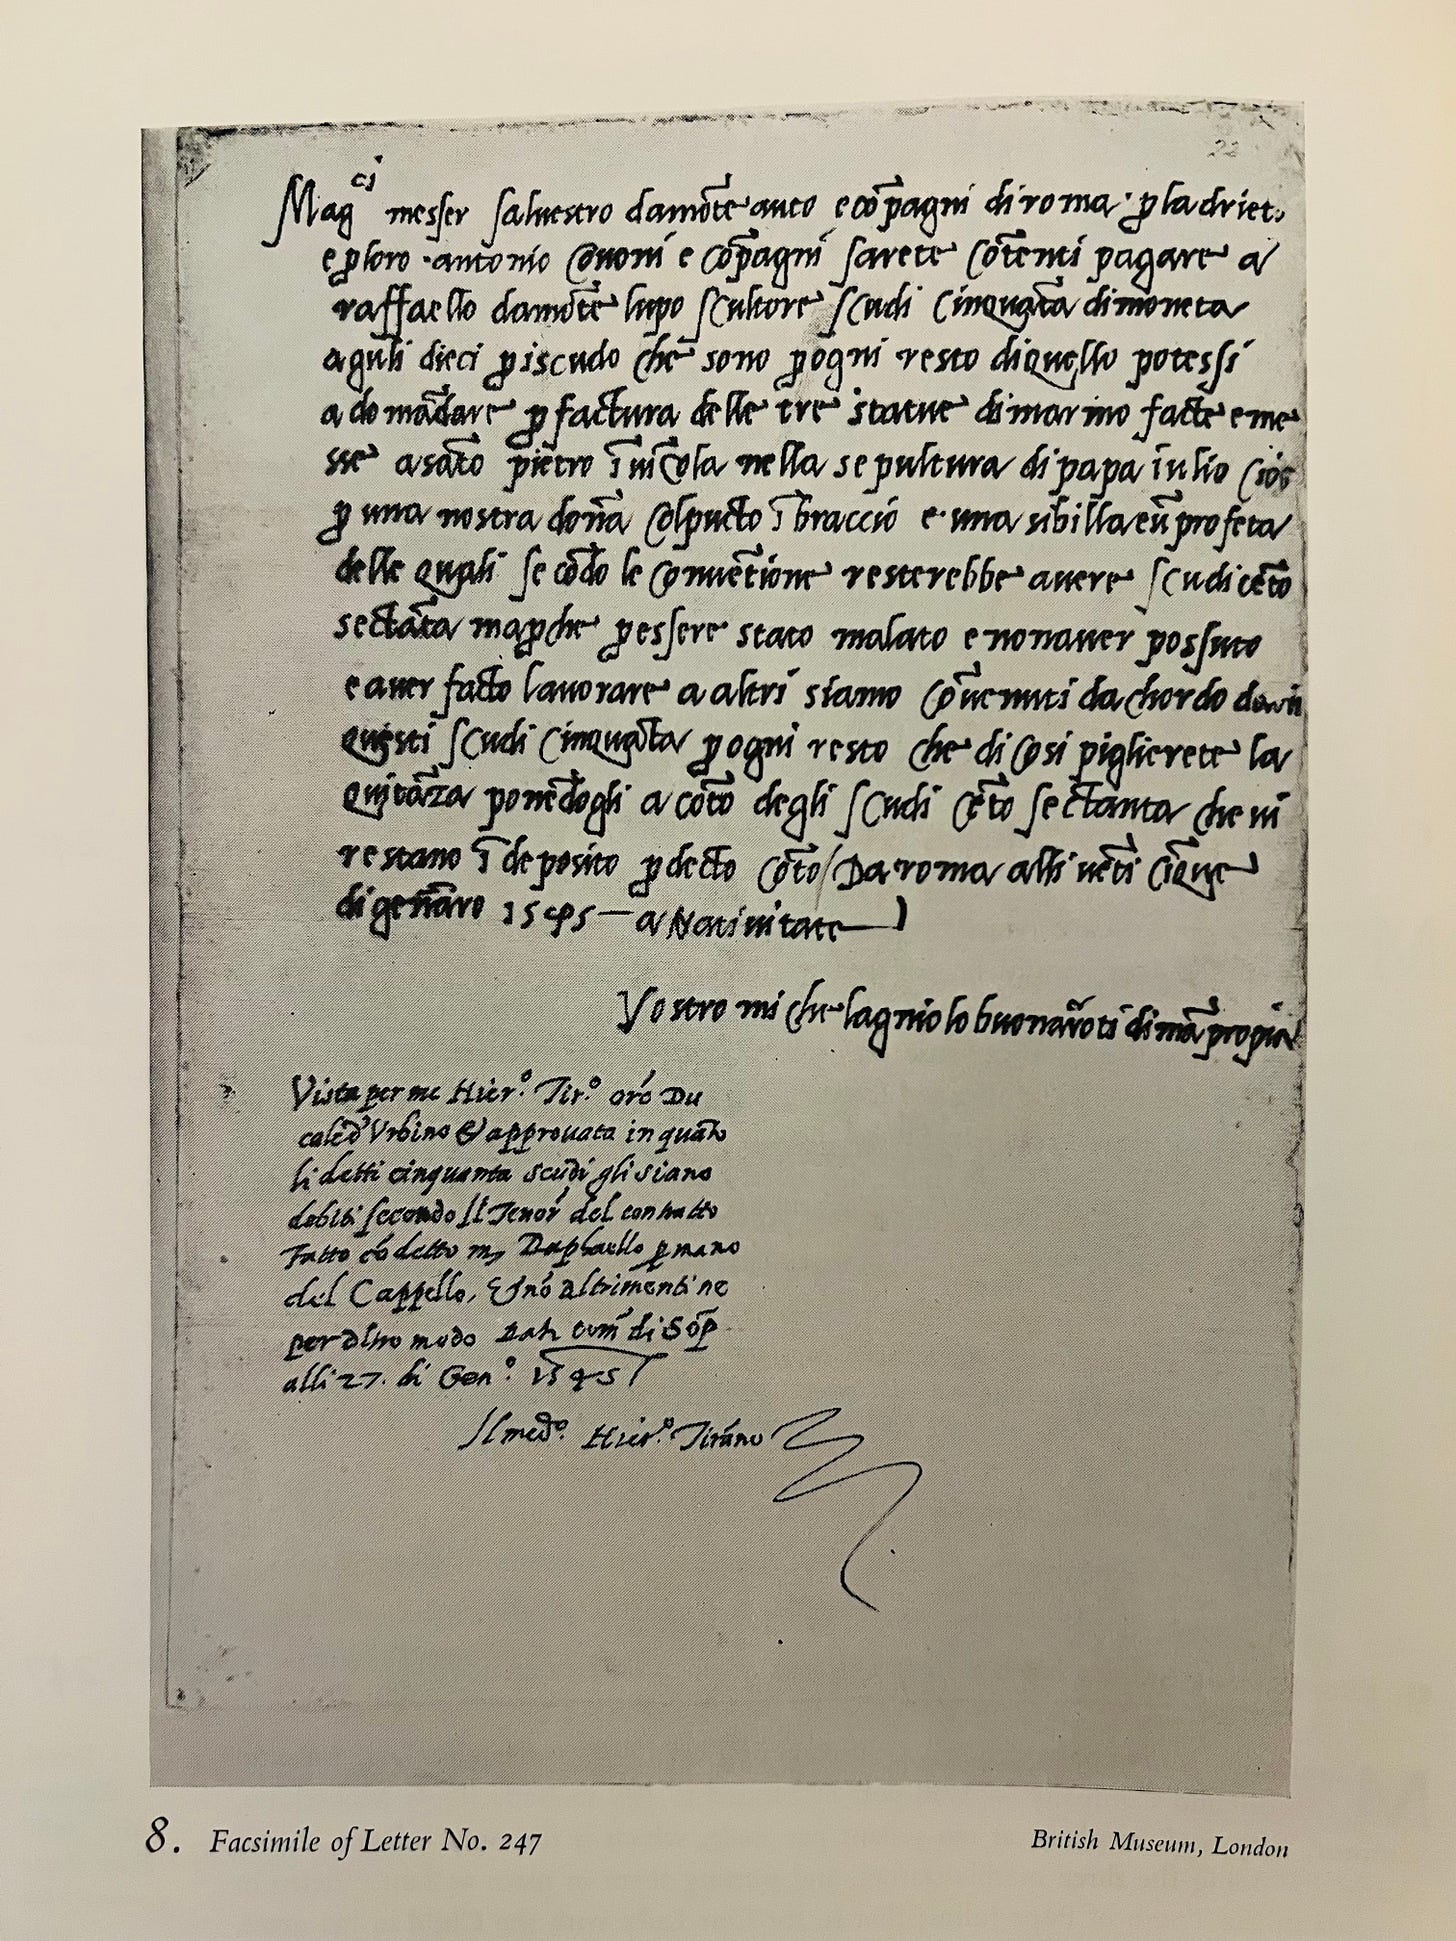 22
Mag.ci messer salvestro damōte auto e cōpagni di roma · p la drieto
e p loro · antonio Covoni e cōpagni sarete cōtenti pagare a
raffaello damōte lupo scultore scudi cinquāta di moneta
a guli dieci p iscudo che sono p ogni resto di quello potessi
a domādare p factura delle tre statue di marmo facte e me
sse a sāto pietro ī vicola nella sepultura di papa iulio cioè
p una nostra dōna col pucto ī braccio e una sibilla e ū profeta
delle quali secōdo le cōuētione resterebbe auere scudi cēto
sectāta ma p che p essere stato malato e non auer possuto
e auer facto lauorare a altri siamo cōuenuti dachordo
questi scudi cinquāta p ogni resto che di cosi piglierete la
quitāza ponēdogli a cōto degli scudi cēto sectanta che ui
restano ī deposito p decto cōto / Da roma alli vēti cīque
di gēnaro 1545 — a Natiuitate
Vostro michelagniolo buonaroti di mā propia
Vista per me Hier.º Tir.º orō Du
cale d' Urbino & approuata in quāto
li detti cinquanta scudi gli siano
debiti secondo il Tenor del contratto
Fatto cō detto m, Raphaello p mano
del Cappello, & nō altrimenti ne
per altro modo Dat. di Sop.
alli 27. di Gen.º 1545
Il med.º Hier.º Tirano
8. Facsimile of Letter No. 247
British Museum, London